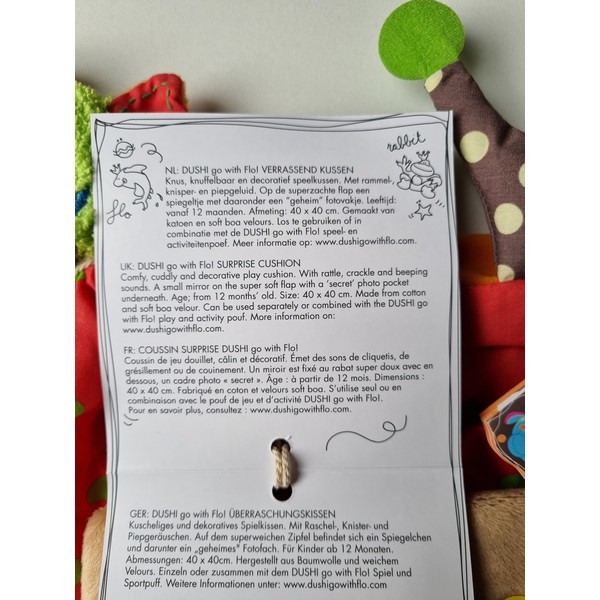 rabbit
flo
NL: DUSHI go with Flo! VERRASSEND KUSSEN
Knus, knuffelbaar en decoratief speelkussen. Met rammel-,
knisper- en piepgeluid. Op de superzachte flap een
spiegeltje met daaronder een "geheim" fotovakje. Leeftijd:
vanaf 12 maanden. Afmeting: 40 x 40 cm. Gemaakt van
katoen en soft boa velours. Los te gebruiken of in
combinatie met de DUSHI go with Flo! speel- en
activiteitenpoef. Meer informatie op: www.dushigowithflo.com.
UK: DUSHI go with Flo! SURPRISE CUSHION
Comfy, cuddly and decorative play cushion. With rattle, crackle and beeping
sounds. A small mirror on the super soft flap with a 'secret' photo pocket
underneath. Age; from 12 months' old. Size: 40 x 40 cm. Made from cotton
and soft boa velour. Can be used separately or combined with the DUSHI go
with Flo! play and activity pouf. More information on:
www.dushigowithflo.com.
FR: COUSSIN SURPRISE DUSHI go with Flo!
Coussin de jeu douillet, câlin et décoratif. Émet des sons de cliquetis, de
grésillement ou de couinement. Un miroir est fixé au rabat super doux avec en
dessous, un cadre photo « secret ». Âge : à partir de 12 mois. Dimensions :
40 x 40 cm. Fabriqué en coton et velours soft boa. S'utilise seul ou en
combinaison avec le pouf de jeu et d'activité DUSHI go with Flo!.
Pour en savoir plus, consultez : www.dushigowithflo.com.
GER: DUSHI go with Flo! ÜBERRASCHUNGSKISSEN
Kuscheliges und dekoratives Spielkissen. Mit Raschel-, Knister- und
Piepgeräuschen. Auf dem superweichen Zipfel befindet sich ein Spiegelchen
und darunter ein „geheimes" Fotofach. Für Kinder ab 12 Monaten.
Abmessungen: 40 x 40cm. Hergestellt aus Baumwolle und weichem
Velours. Einzeln oder zusammen mit dem DUSHI go with Flo! Spiel und
Sportpuff. Weitere Informationen unter: www.dushigowithflo.com